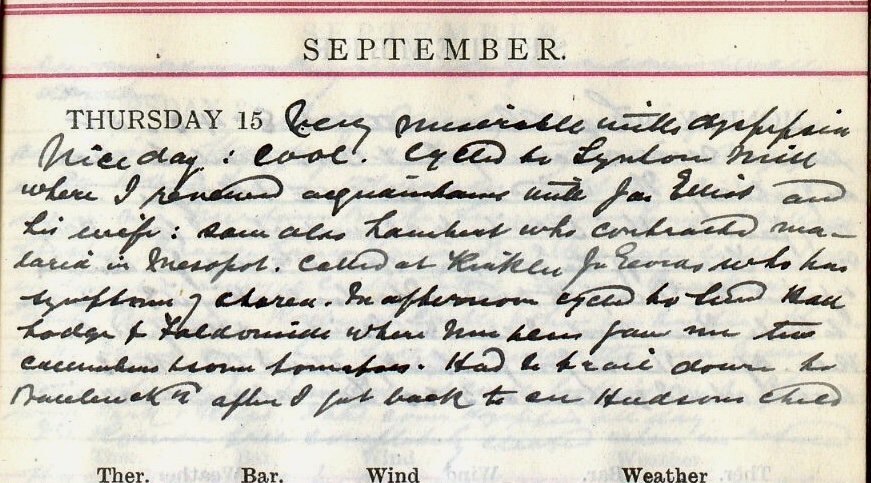 SEPTEMBER.
THURSDAY 15 Very miserable with dyspepsia
Nice day: cool. Cycled to Lynton Mill
where I renewed acquaintance with Jas Elliot and
his wife: saw also Lambert who contracted ma-
laria in Mesopot. Called at who has
symptoms of chorea. In afternoon cycled to Hall
Lodge & where gave me two
cucumbers & some tomatoes. Had to trail down to
after I got back to see Hudsons child
Ther. Bar. Wind Weather